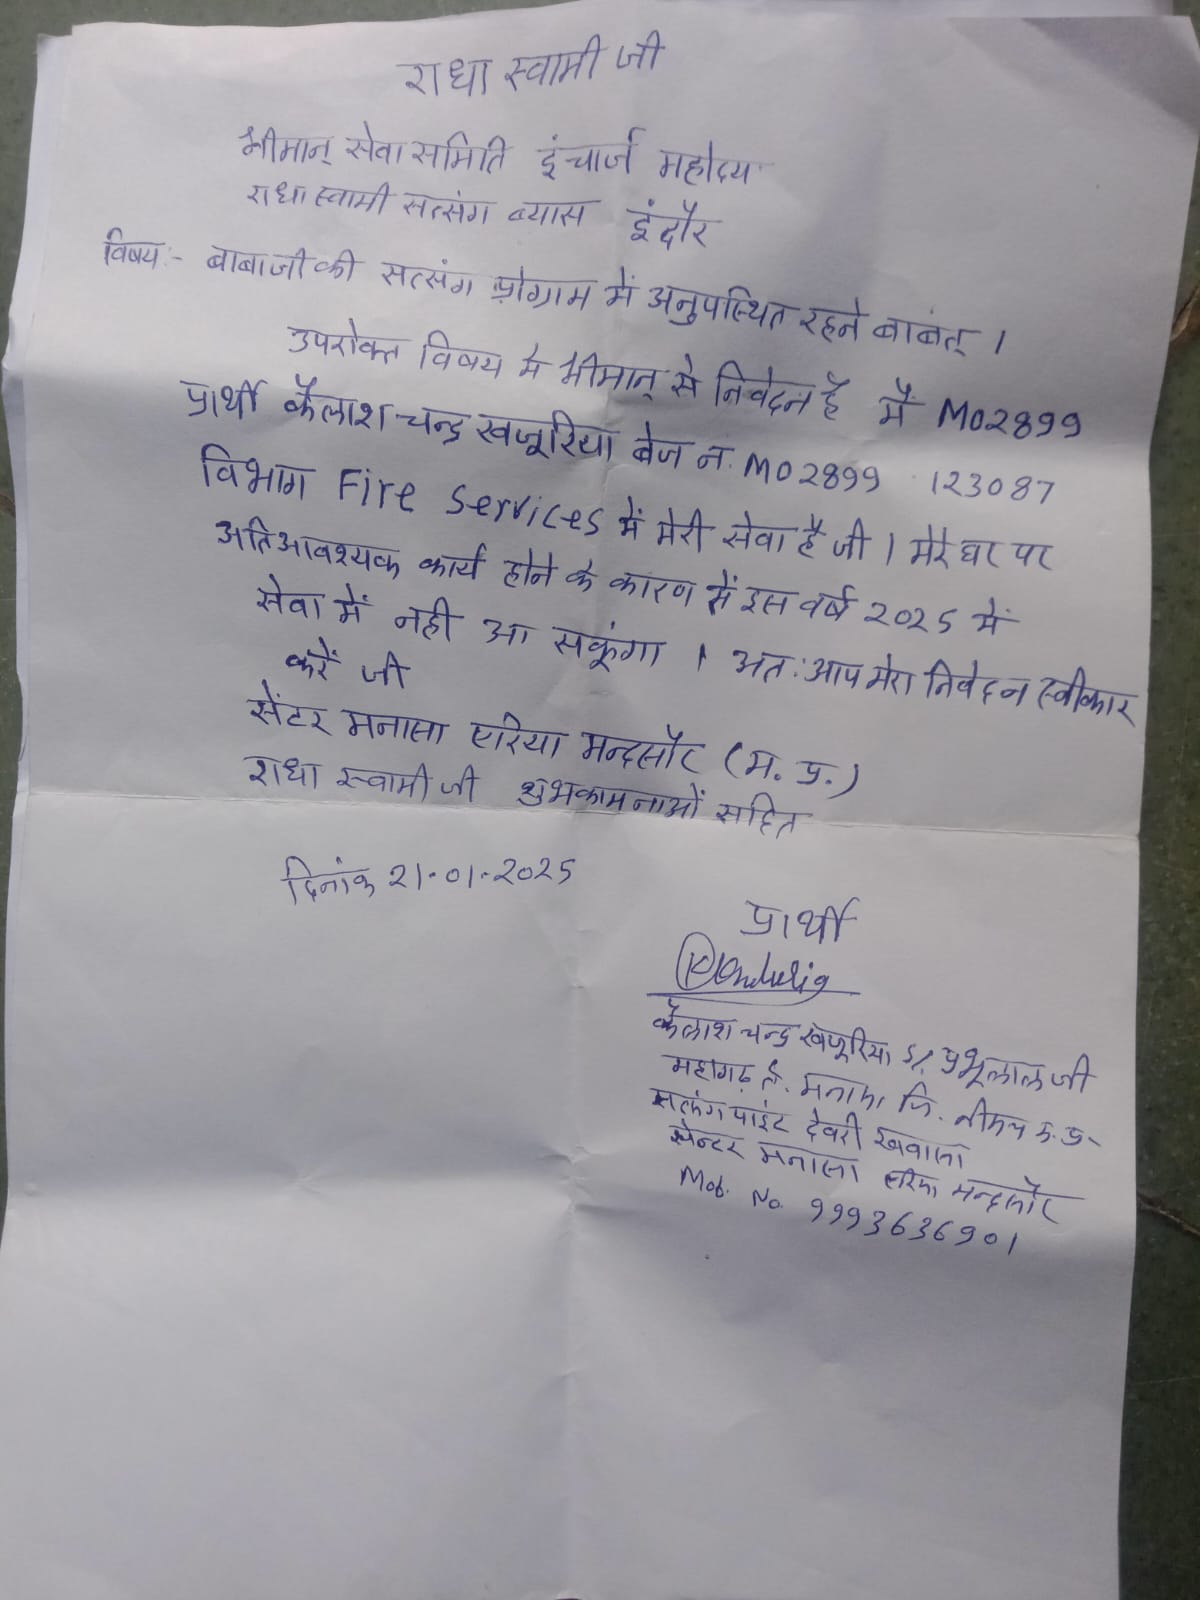 राधा स्वामी जी
श्रीमान् सेवा समिति इंचार्ज महोदय
राधा स्वामी सत्संग ब्यास इंदौर
विषय:- बाबाजी की सत्संग प्रोग्राम में अनुपस्थित रहने बाबत् ।
उपरोक्त विषय मे श्रीमान् से निवेदन है मैं MO2899
प्रार्थी कैलाश चन्द्र खजूरिया बेज न. MO2899 123087
विभाग Fire Services में मेरी सेवा है जी । मेरे घर पर
अतिआवश्यक कार्य होने के कारण में इस वर्ष 2025 में
सेवा में नही आ सकूंगा । अत: आप मेरा निवेदन स्वीकार
करें जी
सेंटर मनासा एरिया मन्दसौर (म. प्र.)
राधा स्वामी जी शुभकामनाओं सहित
दिनांक 21-01-2025
प्रार्थी
कैलाश चन्द्र खजूरिया S/ प्रभूलाल जी
महागढ़ ते. मनासा जि. नीमच म.प्र-
सत्संग पाइंट देवरी खवासा
सेन्टर मनासा एरिया मन्दसौर
Mob. No. 9993636901